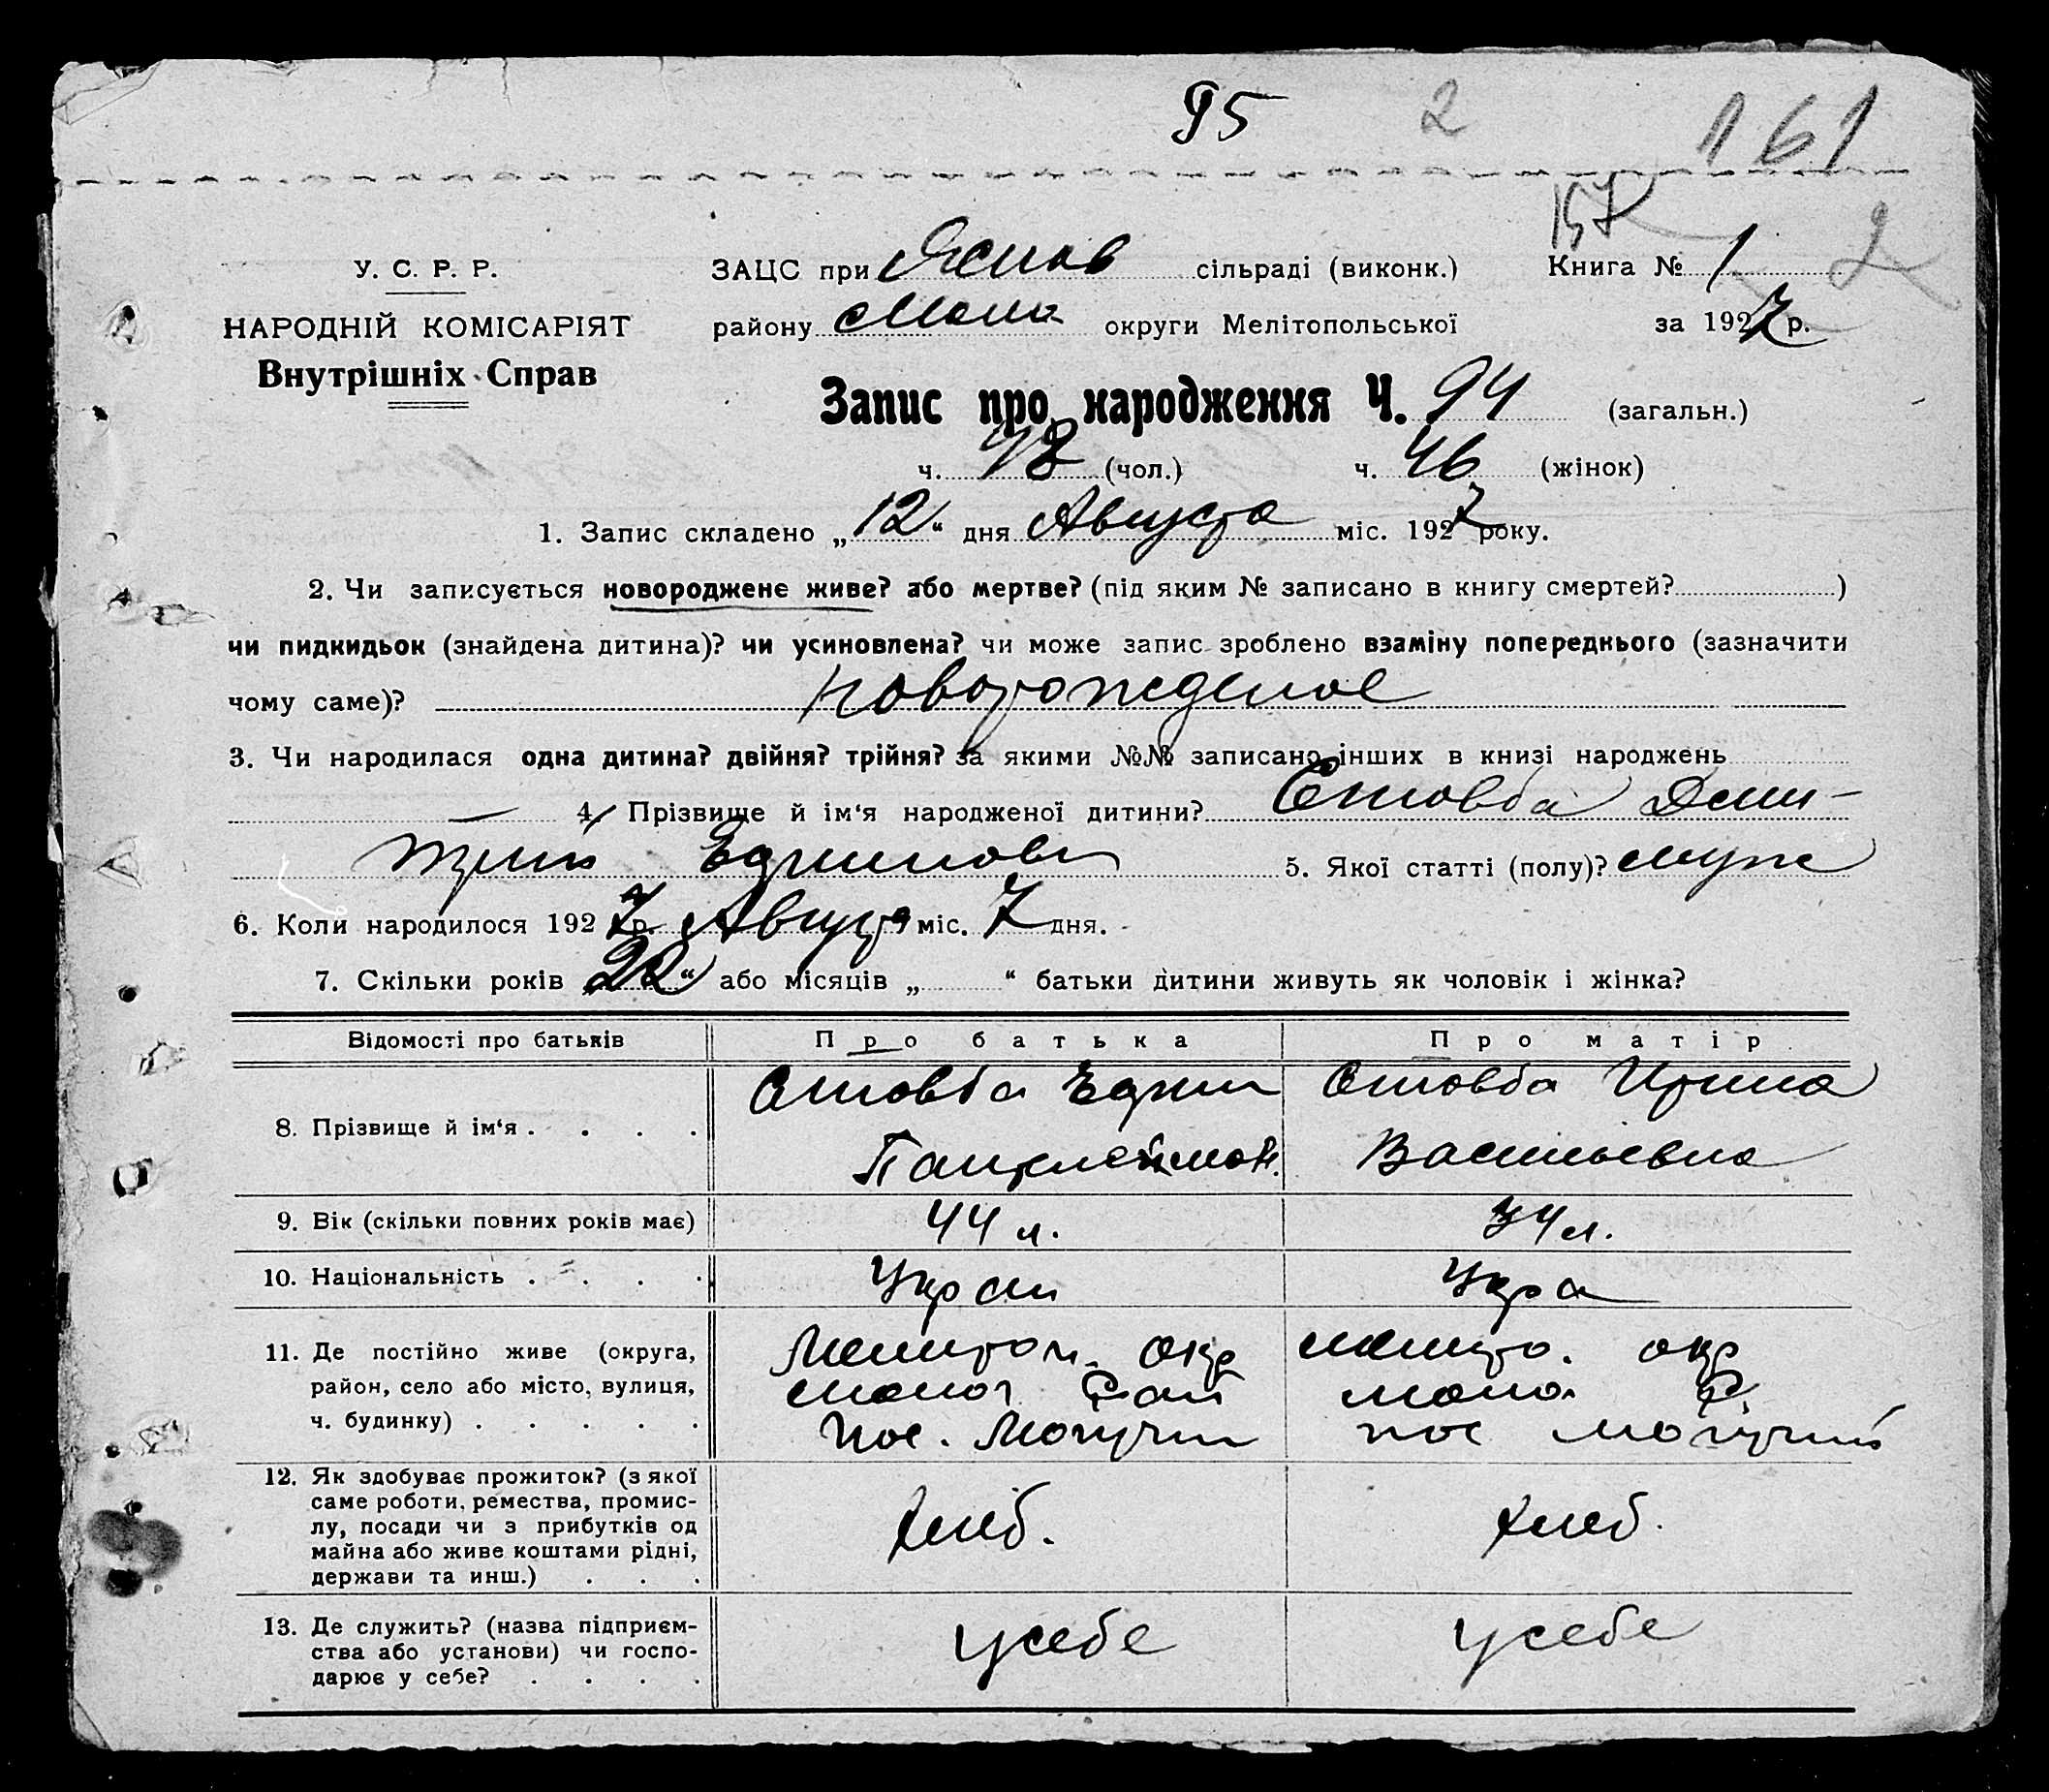 95 2 161
157 2
У. С. Р. Р. ЗАЦС при сільраді (виконк.) Книга № 1
НАРОДНІЙ КОМІСАРІЯТ району округи Мелітопольської за 1927 р.
Внутрішніх Справ
Запис про народження Ч. 94 (загальн.)
ч. 48 (чол.) ч. 46 (жінок)
1. Запис складено „12“ дня Августа міс. 1927 року.
2. Чи записується новороджене живе? або мертве? (під яким № записано в книгу смертей? )
чи пидкидьок (знайдена дитина)? чи усиновлена? чи може запис зроблено взаміну попереднього (зазначити
чому саме)? новорожденое
3. Чи народилася одна дитина? двійня? трійня? за якими №№ записано інших в книзі народжень
— 4. Прізвище й ім‘я народженої дитини? Стовба Дми-
трий 5. Якої статті (полу)? муж
6. Коли народилося 1927 р. Августа міс. 7 дня.
7. Скільки років „20“ або місяців „ “ батьки дитини живуть як чоловік і жінка?
Відомості про батьків Про батька Про матір
8. Прізвище й ім‘я . . . . Стовба Стовба Ирина
Пантелеймон. Васильевна
9. Вік (скільки повних років має) 44 л. 34 л.
10. Національність . . . . Украи Укра
11. Де постійно живе (округа, Мелитоп. окр мелито. окр
район, село або місто, вулиця, рай р
ч. будинку) . . . . . пос. Могучий пос могучий
12. Як здобуває прожиток? (з якої
саме роботи, ремества, промис-
лу, посади чи з прибутків од хлеб. хлеб.
майна або живе коштами рідні,
держави та инш.) . . .
13. Де служить? (назва підприєм-
ства або установи) чи госпо- у себе у себе
дарює у себе? . . . .